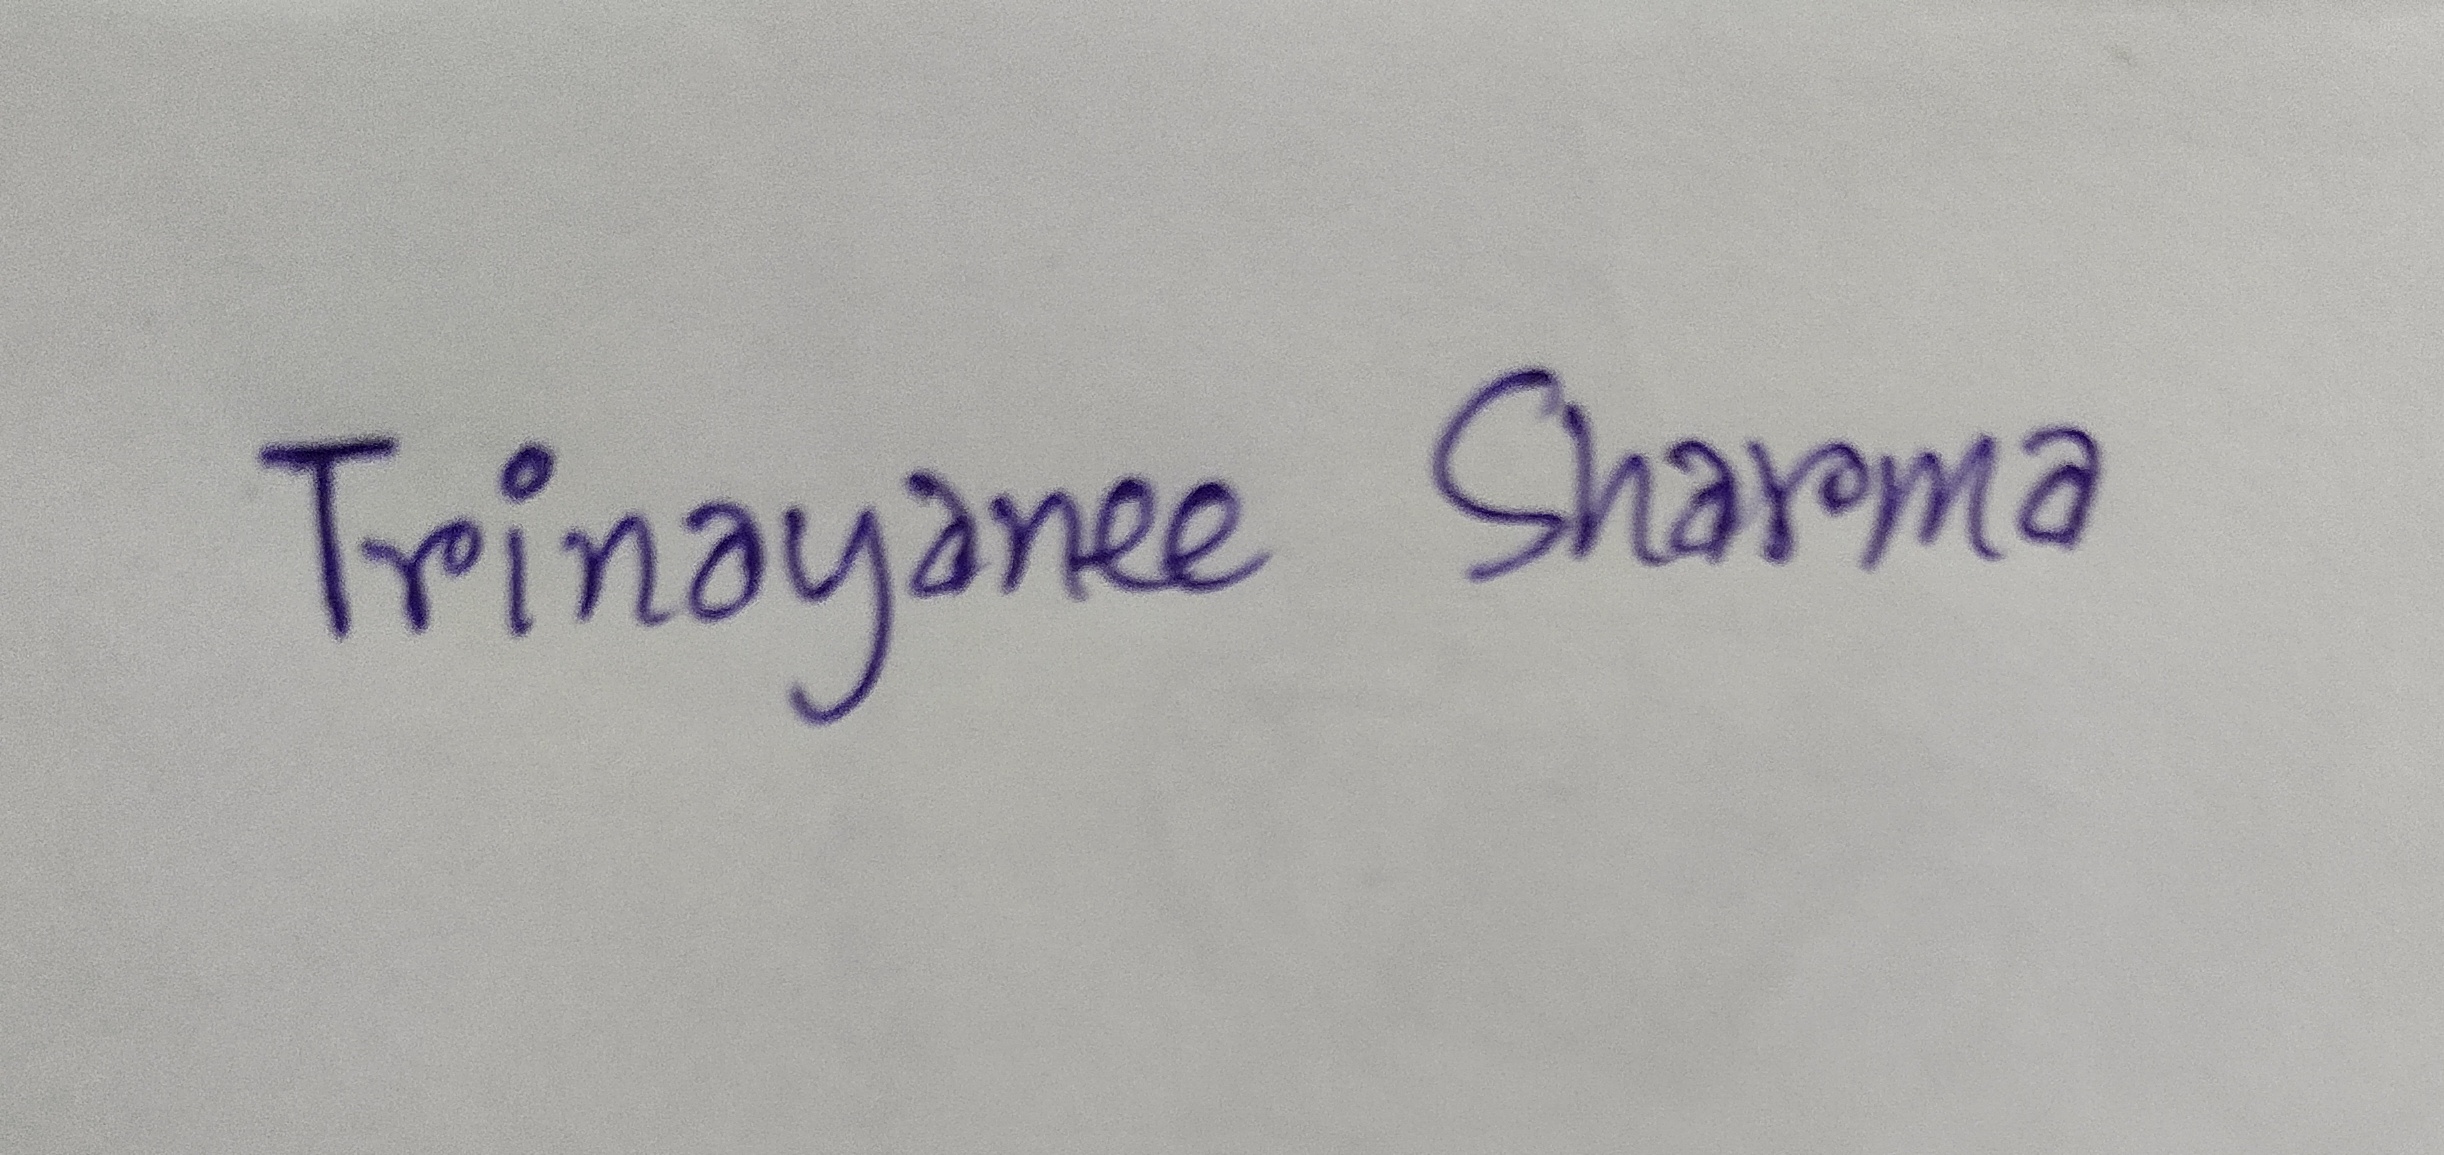 Trinayanee Sharma